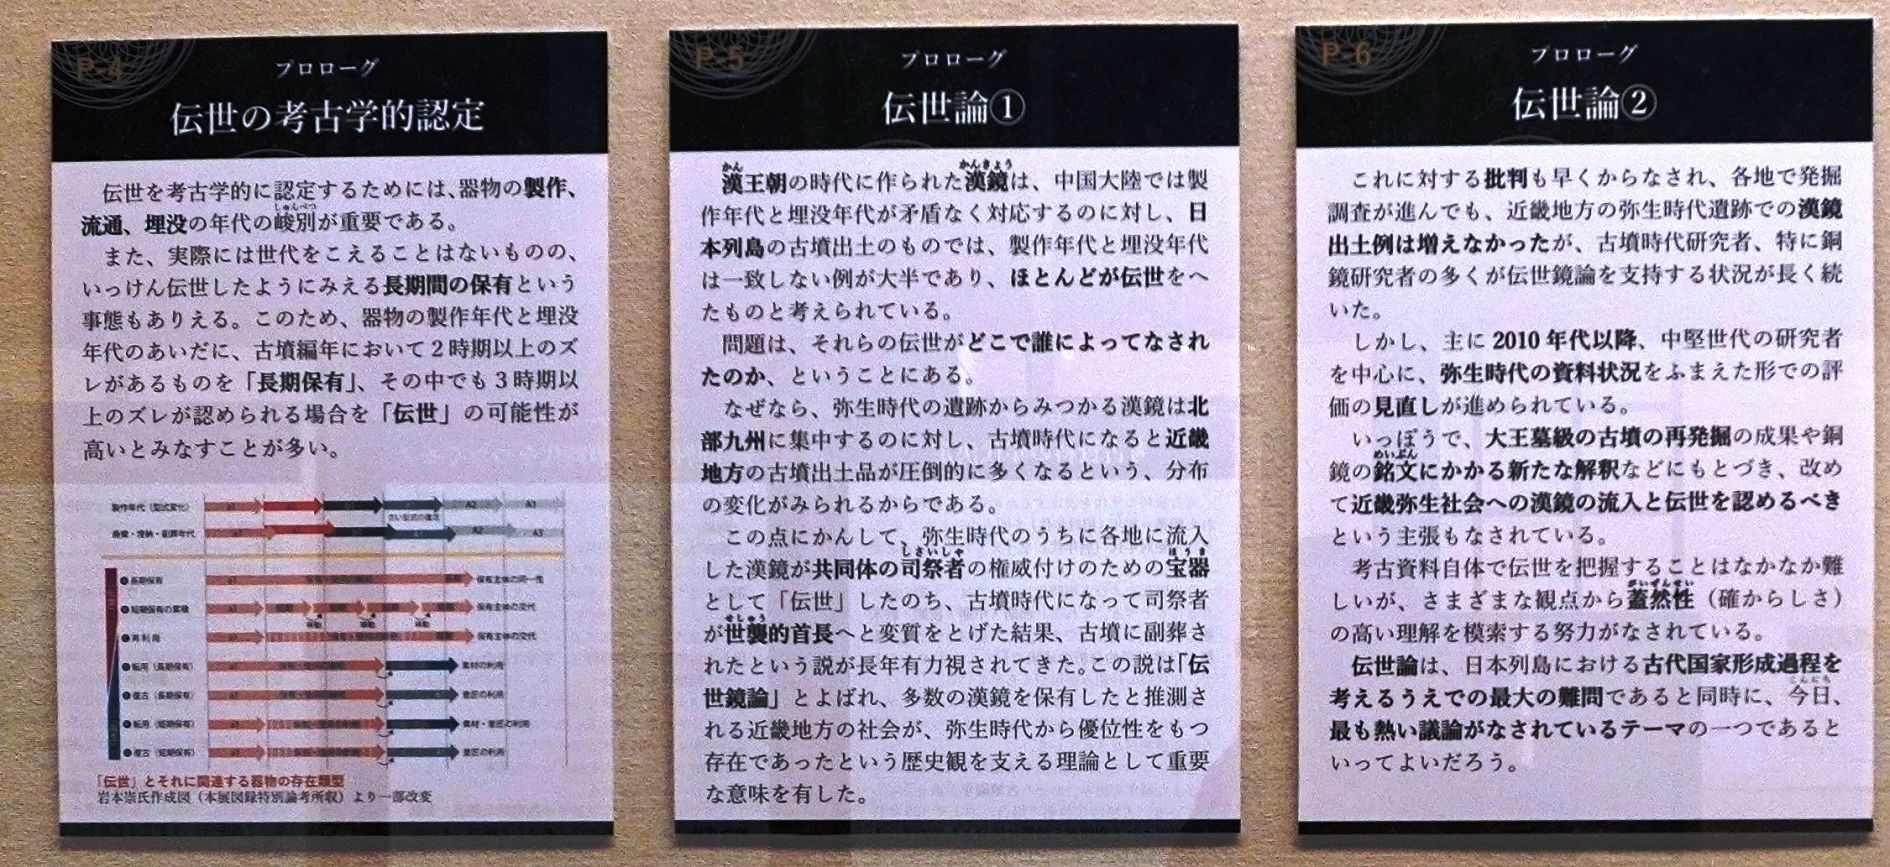 P-4
プロローグ
伝世の考古学的認定
伝世を考古学的に認定するためには、器物の製作、
流通、埋没の年代の峻別が重要である。
しゅんべつ
また、実際には世代をこえることはないものの、
いっけん伝世したようにみえる長期間の保有という
事態もありえる。このため、器物の製作年代と埋没
年代のあいだに、古墳編年において2時期以上のズ
レがあるものを「長期保有」、その中でも3時期以
上のズレが認められる場合を「伝世」の可能性が
高いとみなすことが多い。
製作年代（型式変化）
A2
A3
古い型式の残存
廃棄・埋納・副葬年代
A2
A3
長期保有
保有主体の同一性
短期保有の累積
保有主体の交代
移動
移動
移動
再利用
保有主体の交代
転用（長期保有）
素材の利用
復古（長期保有）
意匠の利用
転用（短期保有）
素材・意匠の利用
復古（短期保有）
意匠の利用
「伝世」とそれに関連する器物の存在類型
岩本崇氏作成図（本展図録特別論考所収）より一部改変
P-5
プロローグ
伝世論①
かん
かんきょう
漢王朝の時代に作られた漢鏡は、中国大陸では製
作年代と埋没年代が矛盾なく対応するのに対し、日
本列島の古墳出土のものでは、製作年代と埋没年代
は一致しない例が大半であり、ほとんどが伝世をへ
たものと考えられている。
問題は、それらの伝世がどこで誰によってなされ
たのか、ということにある。
なぜなら、弥生時代の遺跡からみつかる漢鏡は北
部九州に集中するのに対し、古墳時代になると近畿
地方の古墳出土品が圧倒的に多くなるという、分布
の変化がみられるからである。
この点にかんして、弥生時代のうちに各地に流入
しさいしゃ
ほうき
した漢鏡が共同体の司祭者の権威付けのための宝器
として「伝世」したのち、古墳時代になって司祭者
せしゅう
が世襲的首長へと変質をとげた結果、古墳に副葬さ
れたという説が長年有力視されてきた。この説は「伝
世鏡論」とよばれ、多数の漢鏡を保有したと推測さ
れる近畿地方の社会が、弥生時代から優位性をもつ
存在であったという歴史観を支える理論として重要
な意味を有した。
P-6
プロローグ
伝世論②
これに対する批判も早くからなされ、各地で発掘
調査が進んでも、近畿地方の弥生時代遺跡での漢鏡
出土例は増えなかったが、古墳時代研究者、特に銅
鏡研究者の多くが伝世鏡論を支持する状況が長く続
いた。
しかし、主に2010年代以降、中堅世代の研究者
を中心に、弥生時代の資料状況をふまえた形での評
価の見直しが進められている。
いっぽうで、大王墓級の古墳の再発掘の成果や銅
めいぶん
鏡の銘文にかかる新たな解釈などにもとづき、改め
て近畿弥生社会への漢鏡の流入と伝世を認めるべき
という主張もなされている。
考古資料自体で伝世を把握することはなかなか難
がいぜんせい
しいが、さまざまな観点から蓋然性（確からしさ）
の高い理解を模索する努力がなされている。
伝世論は、日本列島における古代国家形成過程を
こんにち
考えるうえでの最大の難問であると同時に、今日、
最も熱い議論がなされているテーマの一つであると
いってよいだろう。